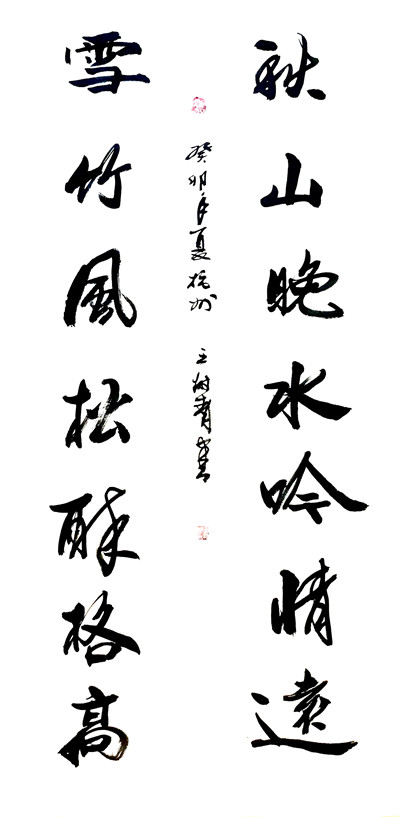 秋山晚水吟情遠
雪竹風松醉格高
癸卯年夏杭州 王